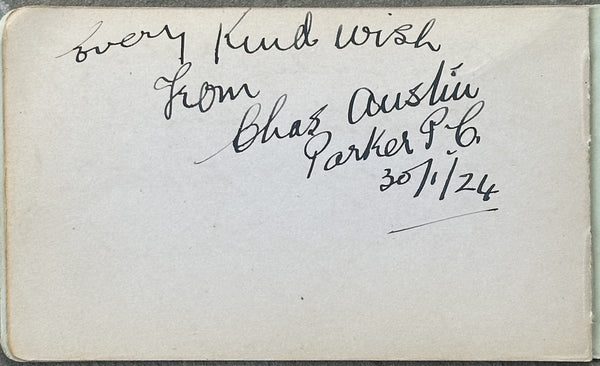 Every Kind wish
from
Chas Austin
Parker P.C.
30/1/24